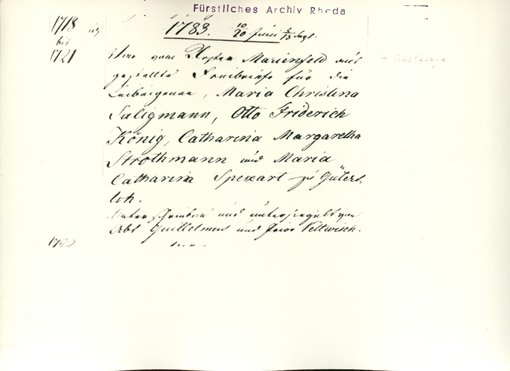 Fürstliches Archiv Rheda
1718
bis
1721
1783. 10/20 Juni
Vier vom Kloster Marienfeld aus
gestellte Freibriefe für die
Leibeigenen, Maria Christina
Saligmann, Otto Friderich
König, Catharina Margaretha
Strothmann und Maria
Catharina Spexart zu Güters
loh.
Unterschrieben und untersiegelt von
Abt Guillelmus und Prior